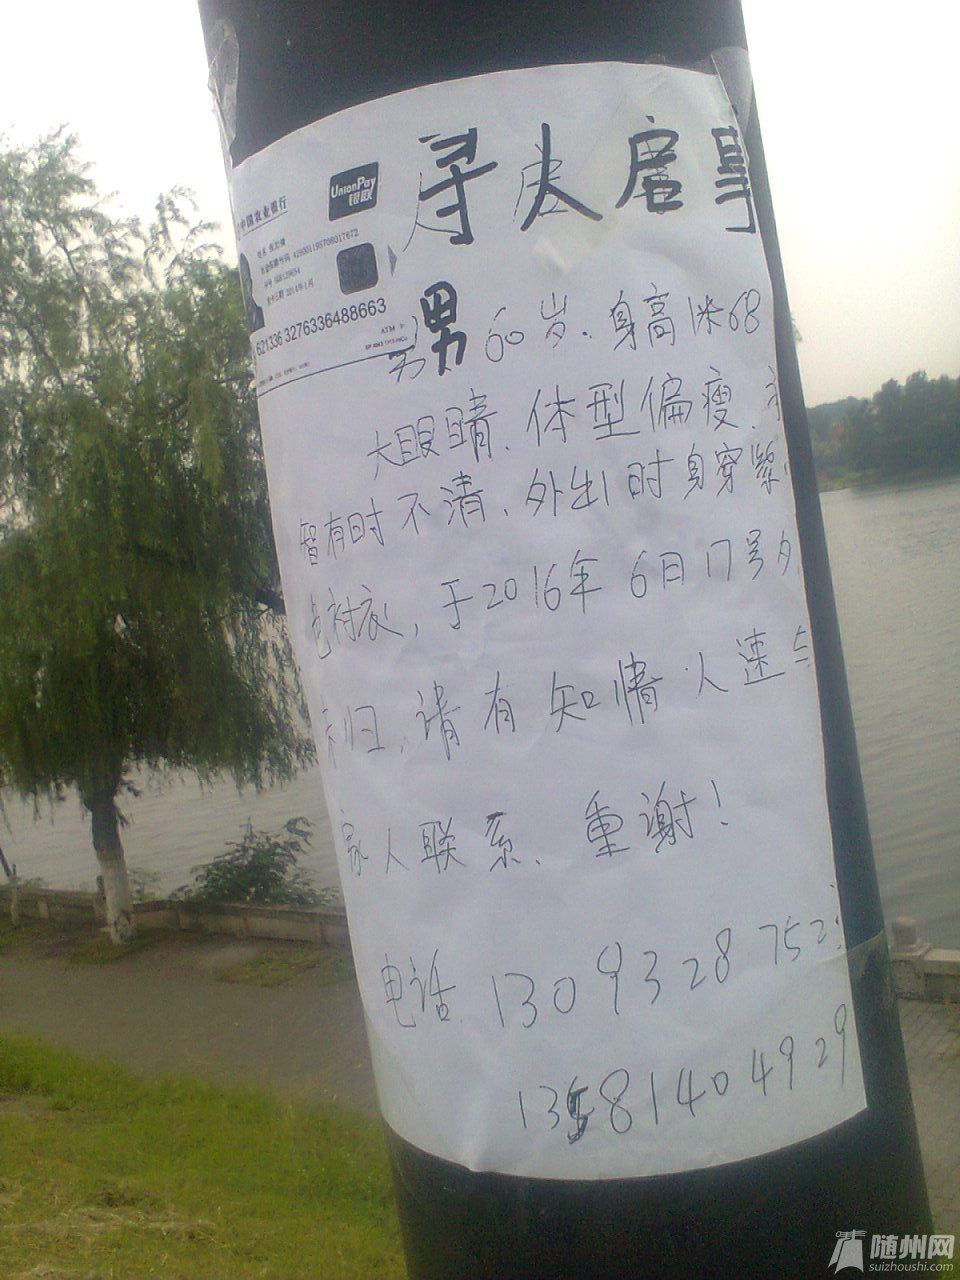 寻人启事
UnionPay
银联
中国农业银行
621336 3276336488663
ATM
男 60岁.身高1米68
大眼睛.体型偏瘦.
智有时不清.外出时身穿紫
色衬衣,于2016年6月17号外
归,请有知情人速与
家人联系.重谢!
电话 1309328752
13581404929
随州网
suizhoushi.com